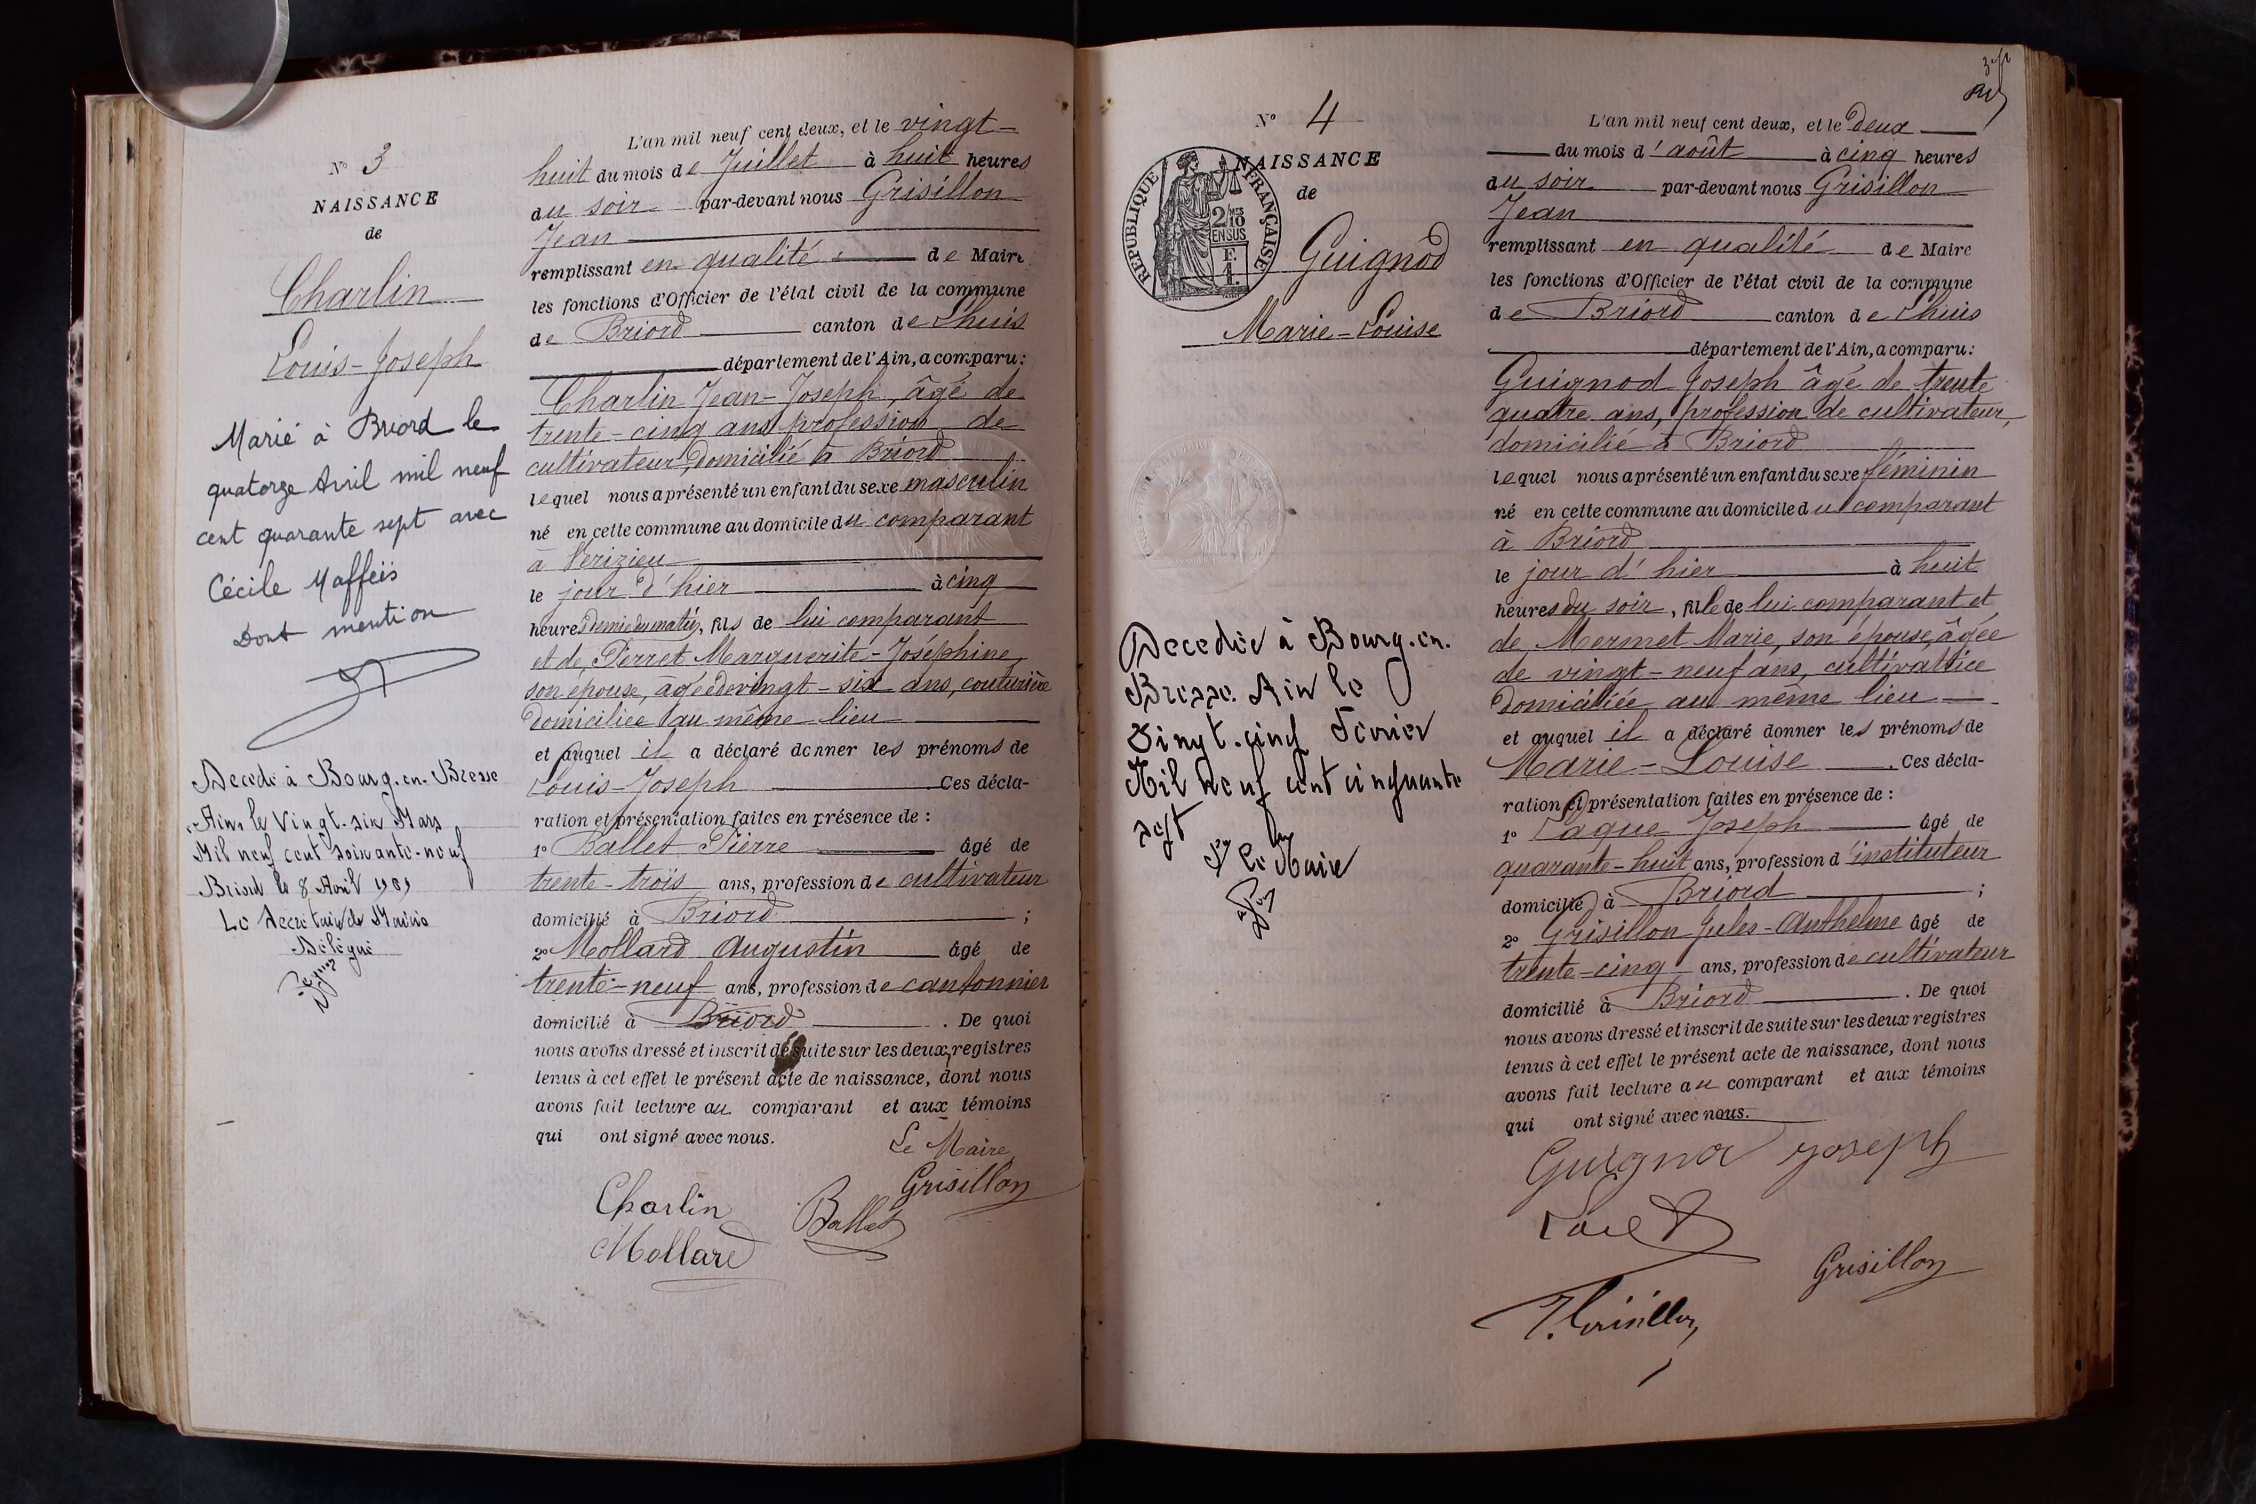 N° 3
NAISSANCE
de
Charlin
Louis-Joseph
Marié à Briord le
quatorze Avril mil neuf
cent quarante sept avec
Cécile Maffeïs
Dont mention
Decedé à Bourg-en-Bresse
Ain, le Vingt-six Mars
Mil neuf cent soixante-neuf
Briord le 8 Avril 1969
Le Secrétaire de Mairie
Délégué
L'an mil neuf cent deux, et le vingt-
huit du mois de Juillet à huit heures
du soir par-devant nous Grisillon
Jean
remplissant en qualité de Maire
les fonctions d'Officier de l'état civil de la commune
de Briord canton de Lhuis
département de l'Ain, a comparu:
Charlin Jean-Joseph, âgé de
trente-cinq ans profession de
cultivateur, domicilié à Briord
lequel nous a présenté un enfant du sexe masculin
né en cette commune au domicile du comparant
à Verizieu
le jour d'hier à cinq
heures demie du matin, fils de lui comparant
et de Perret Marguerite-Joséphine
son épouse, âgée de vingt-six ans, couturière
domiciliée au même lieu
et auquel il a déclaré donner les prénoms de
Louis-Joseph Ces décla-
ration et présentation faites en présence de :
1° Ballet Pierre âgé de
trente-trois ans, profession de cultivateur
domicilié à Briord ;
2° Mollard Augustin âgé de
trente-neuf ans, profession de cantonnier
domicilié à Briord . De quoi
nous avons dressé et inscrit de suite sur les deux registres
tenus à cet effet le présent acte de naissance, dont nous
avons fait lecture au comparant et aux témoins
qui ont signé avec nous.
Le Maire
Grisillon
Charlin
Ballet
Mollard
N° 4
NAISSANCE
de
RÉPUBLIQUE FRANÇAISE
2 10
EN SUS
F.
1.
Guignod
Marie-Louise
Decedée à Bourg-en-
Bresse Ain le
Vingt-cinq Fevrier
Mil neuf cent cinquante
sept
Le Maire
L'an mil neuf cent deux, et le deux
du mois d'août à cinq heures
du soir par-devant nous Grisillon
Jean
remplissant en qualité de Maire
les fonctions d'Officier de l'état civil de la commune
de Briord canton de Lhuis
département de l'Ain, a comparu:
Guignod Joseph âgé de trente
quatre ans, profession de cultivateur,
domicilié à Briord
lequel nous a présenté un enfant du sexe féminin
né en cette commune au domicile du comparant
à Briord
le jour d'hier à huit
heures du soir, fille de lui comparant et
de Mermet Marie, son épouse, âgée
de vingt-neuf ans, cultivatrice
domiciliée au même lieu
et auquel il a déclaré donner les prénoms de
Marie-Louise . Ces décla-
ration et présentation faites en présence de :
1° Joseph âgé de
quarante-huit ans, profession d'instituteur
domicilié à Briord ;
2° Grisillon Jules-Anthelme âgé de
trente-cinq ans, profession de cultivateur
domicilié à Briord . De quoi
nous avons dressé et inscrit de suite sur les deux registres
tenus à cet effet le présent acte de naissance, dont nous
avons fait lecture au comparant et aux témoins
qui ont signé avec nous.
Guignod Joseph
Grisillon